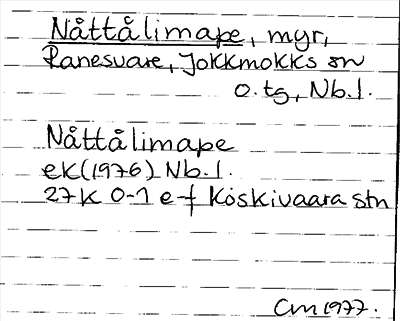 Nåttålimape, myr,
Ranesvare, Jokkmokks sn
o. tg, Nb. l.
Nåttålimape
ek (1976) Nb. l.
27K 0-1 e-f Koskivaara stn
CM 1977.